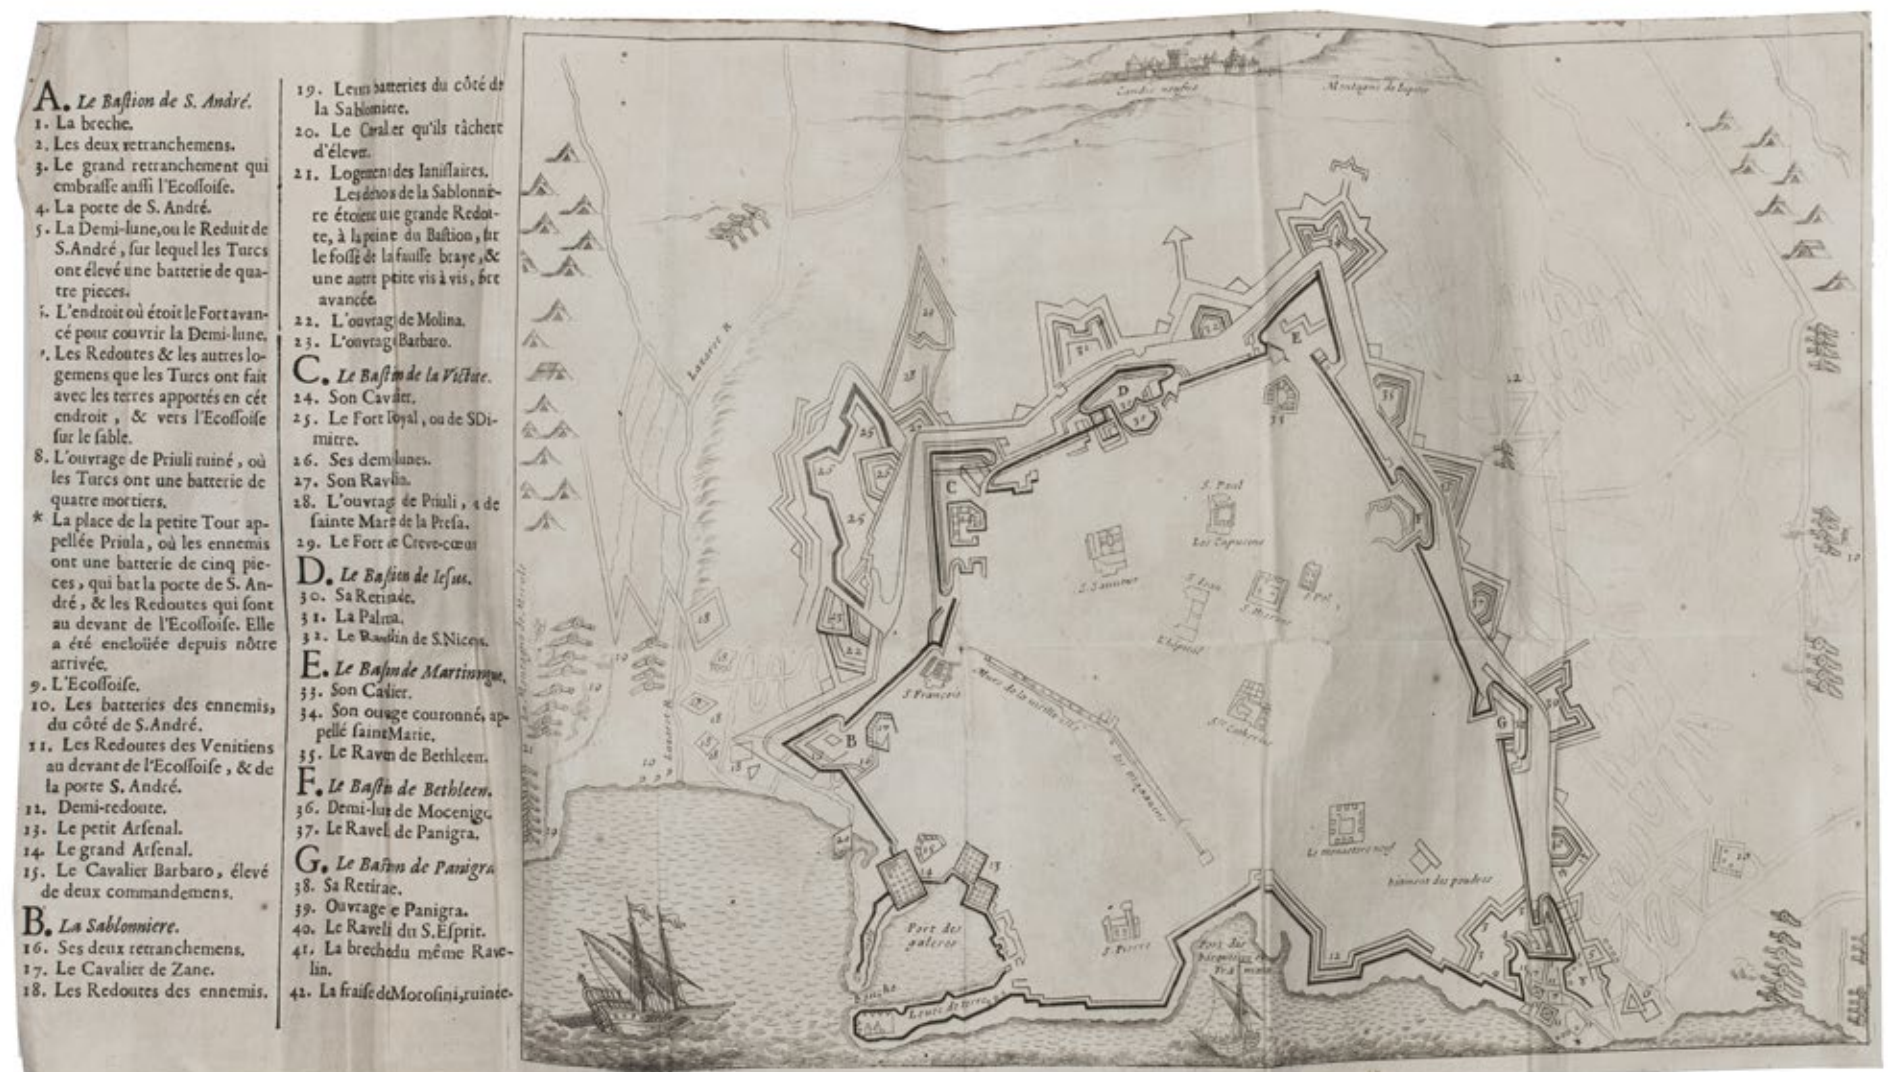 A. Le Bastion de S. André.
1. La breche.
2. Les deux retranchemens.
3. Le grand retranchement qui
embrasse aussi l'Ecossoise.
4. La porte de S. André.
5. La Demi-lune, ou le Reduit de
S. André, sur lequel les Turcs
ont élevé une batterie de qua-
tre pieces.
L'endroit où étoit le Fort avan-
cé pour couvrir la Demi-lune.
Les Redoutes & les autres lo-
gemens que les Turcs ont fait
avec les terres apportés en cét
endroit, & vers l'Ecossoise
sur le sable.
8. L'ouvrage de Priuli ruiné, où
les Turcs ont une batterie de
quatre mortiers.
* La place de la petite Tour ap-
pellée Priula, où les ennemis
ont une batterie de cinq pie-
ces, qui bat la porte de S. An-
dré, & les Redoutes qui sont
au devant de l'Ecossoise. Elle
a été enclouée depuis nôtre
arrivée.
9. L'Ecossoise.
10. Les batteries des ennemis,
du côté de S. André.
11. Les Redoutes des Venitiens
au devant de l'Ecossoise, & de
la porte S. André.
12. Demi-redoute.
13. Le petit Arsenal.
14. Le grand Arsenal.
15. Le Cavalier Barbaro, élevé
de deux commandemens.
B. La Sablonniere.
16. Ses deux retranchemens.
17. Le Cavalier de Zane.
18. Les Redoutes des ennemis.
19. batteries du côté de
la Sablonniere.
20. Le qu'ils tâchent
d'élever.
21. Logement des Ianissaires.
Les dehors de la Sablonnie-
re étoient une grande Redou-
te, à la pointe du Bastion, sur
le fossé de la fausse braye, &
une autre petite vis à vis, fort
avancée.
22. L'ouvrage de Molina.
23. L'ouvrage Barbaro.
C. Le Bastion de la Victoire.
24. Son Cavalier.
25. Le Fort Royal, ou de S. Di-
mitre.
26. Ses demi lunes.
27. Son Ravelin.
28. L'ouvrage de Priuli, de
sainte Marie de la Presa.
29. Le Fort de Creve-cœur
D. Le Bastion de Iesus.
30. Sa Retirade.
31. La Palma.
32. Le Ravelin de S. Nicolas.
E. Le Bastion de Martinengue.
33. Son Cavalier.
34. Son ouvrage couronné, ap-
pellé sainte Marie.
35. Le Ravelin de Bethleem.
F. Le Bastion de Bethleem.
36. Demi-lune de Mocenigo.
37. Le Ravelin de Panigra.
G. Le Bastion de Panigra
38. Sa Retirade.
39. Ouvrage de Panigra.
40. Le Ravelin du S. Esprit.
41. La breche du même Rave-
lin.
42. La fraise de Morosini, ruinée.
Candie neufve
Montagne de Iupiter
Lazaret R
S. Paul
Les Capucins
S. Sauveur
S. Iean
L'hôpital
S. François
Murs de la vieille ville
Ste Catherine
Le monastere neuf
batiment des poudres
S. Pierre
Port des
galeres
B
C
D
E
F
G